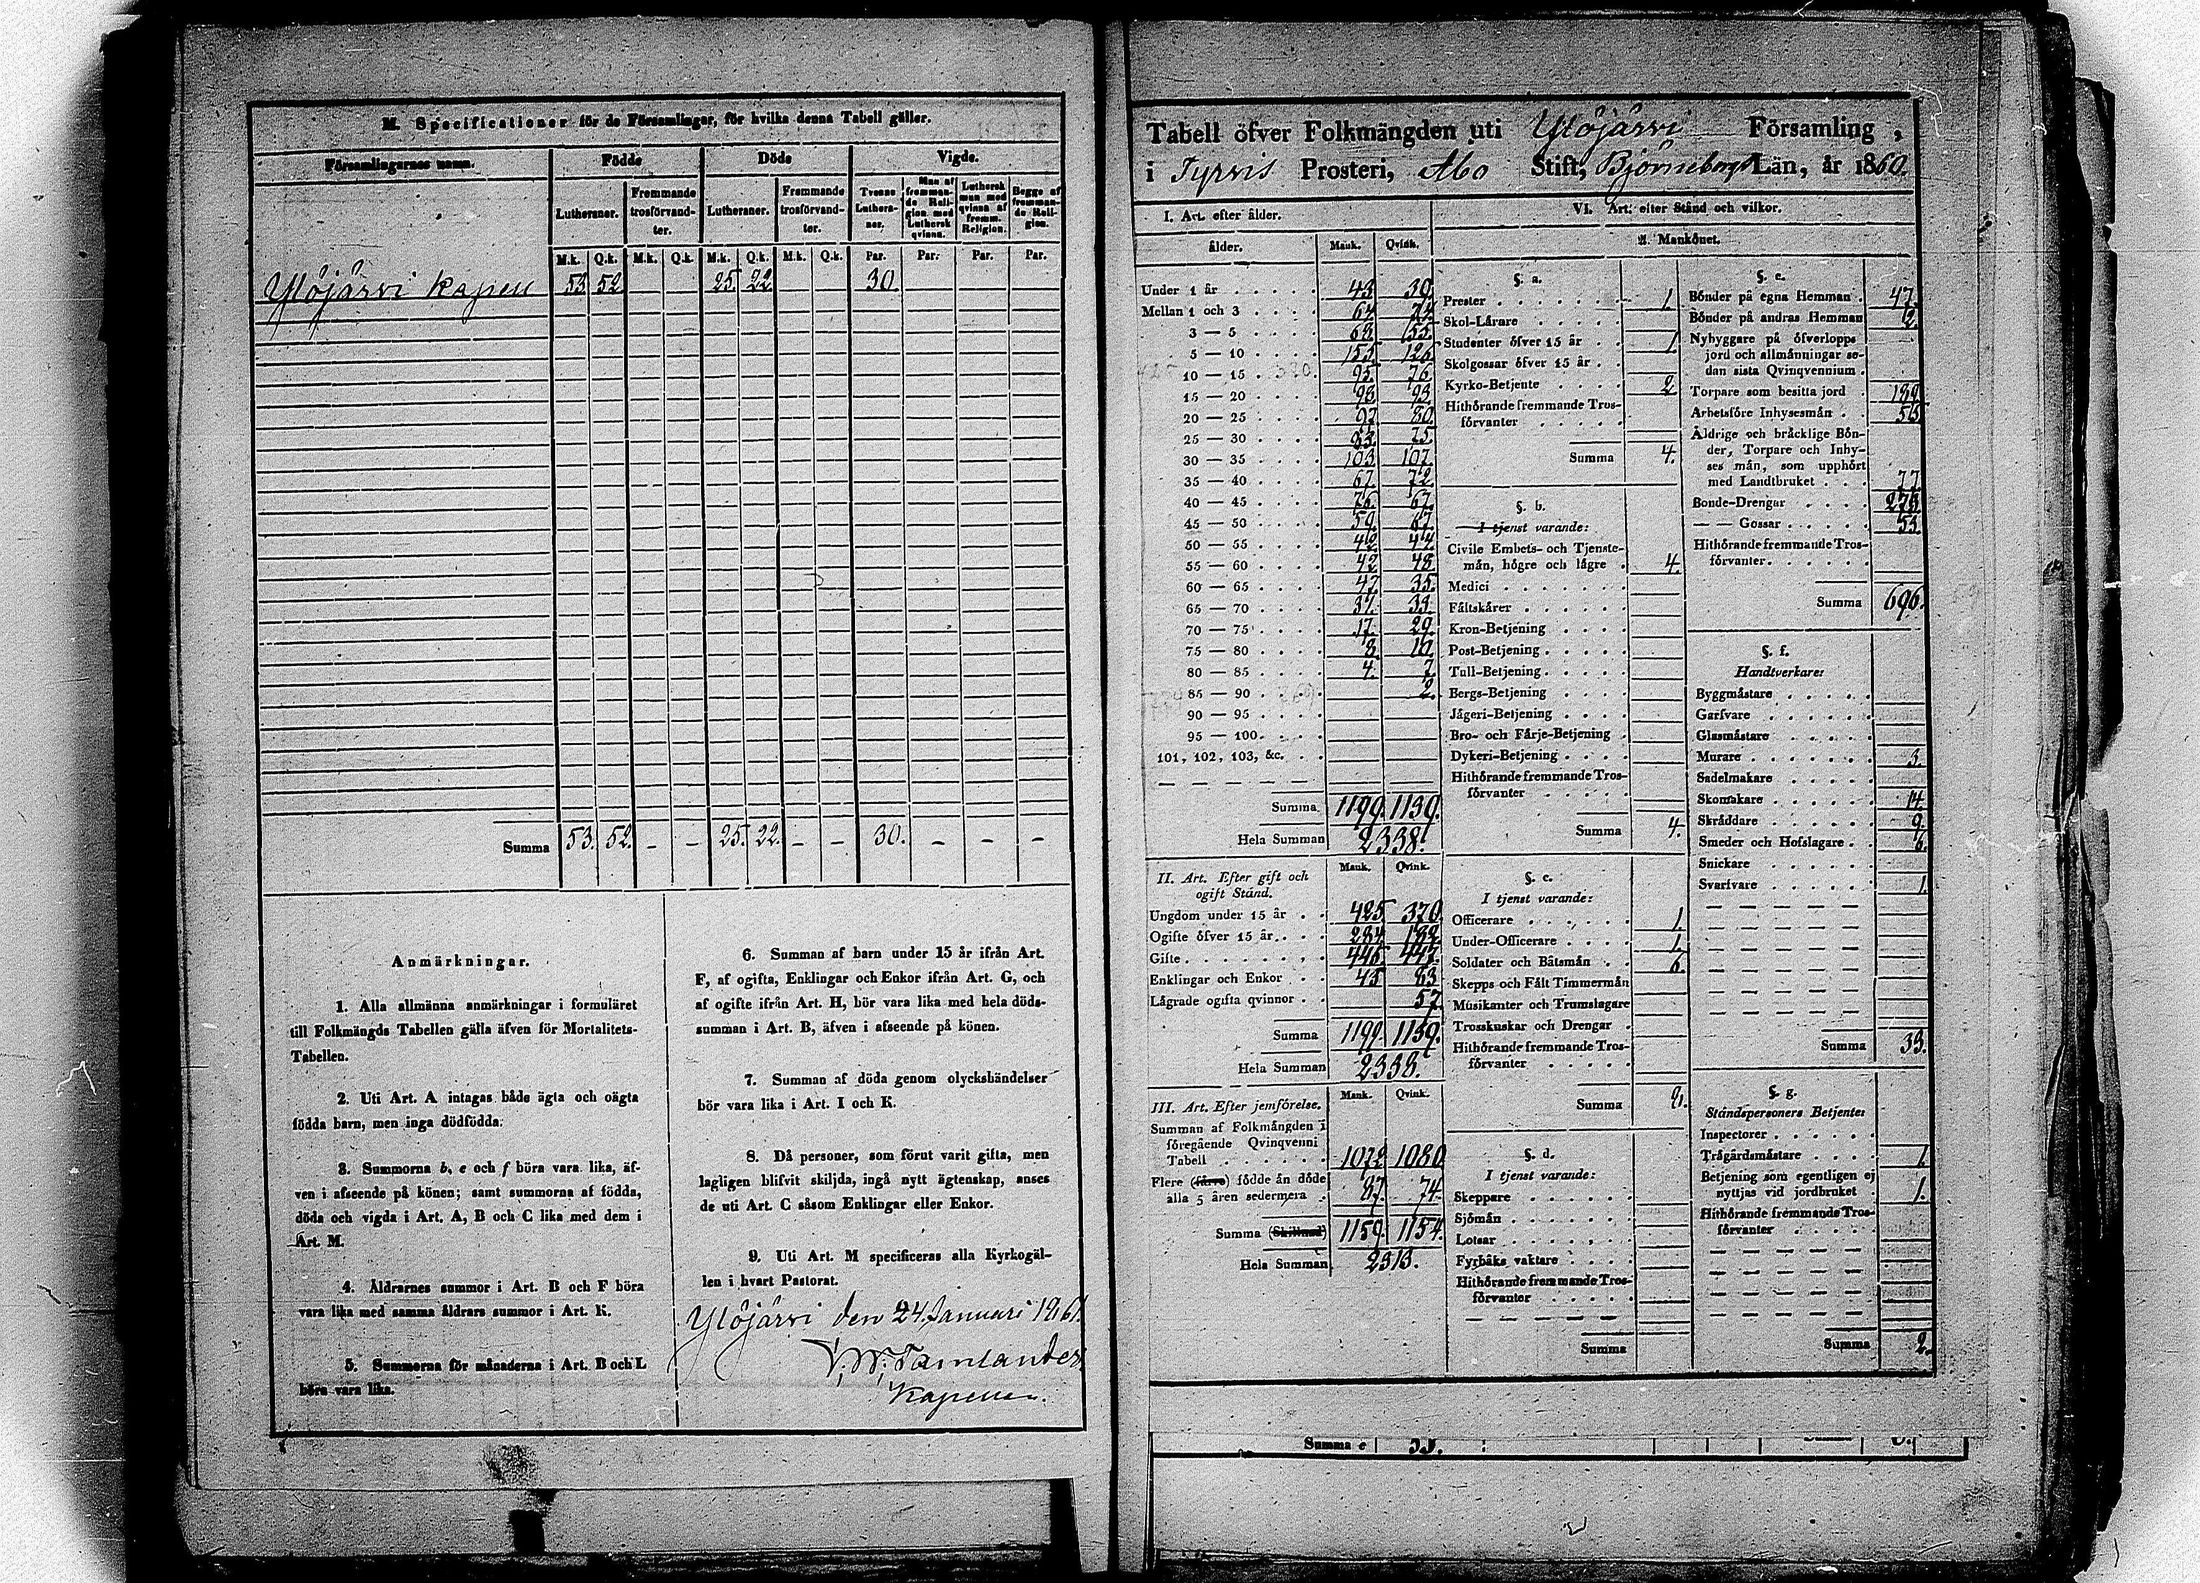 M. Specificationer för de Församlingar, för hvilka denna Tabell gäller.
Församlingarnes namn.
Födde
Döde
Vigde.
Lutheraner.
Fremmande trosförvandter.
Lutheraner.
Fremmande trosförvandter.
Tvenne Lutheraner.
Man af fremmande Religion med Luthersk qvinna.
Luthersk man med qvinna af fremm. Religion.
Begge af fremmande Religion.
M.k. Q.k. M.k. Q.k. M.k. Q.k. M.k. Q.k. Par. Par. Par. Par.
Ylöjärvi kapell 53 52 25 22 30
Summa 53. 52. – – 25. 22. – – 30. – – –
Anmärkningar.
1. Alla allmänna anmärkningar i formuläret
till Folkmängds Tabellen gälla äfven för Mortalitets-
Tabellen.
2. Uti Art. A intagas både ägta och oägta
födda barn, men inga dödfödda.
3. Summorna b, e och f böra vara lika, äf-
ven i afseende på könen; samt summorna af födda,
döda och vigda i Art. A, B och C lika med dem i
Art. M.
4. Åldrarnes summor i Art. B och F böra
vara lika med samma åldrars summor i Art. K.
5. Summorna för månaderna i Art. B och L
böra vara lika.
6. Summan af barn under 15 år ifrån Art.
F, af ogifta, Enklingar och Enkor ifrån Art. G, och
af ogifte ifrån Art. H, bör vara lika med hela döds-
summan i Art. B, äfven i afseende på könen.
7. Summan af döda genom olyckshändelser
bör vara lika i Art. I och K.
8. Då personer, som förut varit gifta, men
lagligen blifvit skiljda, ingå nytt ägtenskap, anses
de uti Art. C såsom Enklingar eller Enkor.
9. Uti Art. M specificeras alla Kyrkogäl-
len i hvart Pastorat.
Ylöjärvi den 24. Januari 1861.
Tabell öfver Folkmängden uti Ylöjärvi Församling,
i Tyrvis Prosteri, Åbo Stift, Björneborgs Län, år 1860.
I. Art. efter ålder.
ålder. Mank. Qvink.
Under 1 år 43 39
Mellan 1 och 3
3 — 5 68 55
5 — 10 155 126
10 — 15 95 76
15 — 20 98 93
20 — 25 97 80
25 — 30 83 75
30 — 35 103 107
35 — 40 67 72
40 — 45 76 67
45 — 50 59 67
50 — 55 42 44
55 — 60 42 48
60 — 65 47 35
65 — 70 37 33
70 — 75 17 29
75 — 80 8 10
80 — 85 4. 7
85 — 90 2
90 — 95
95 — 100
101, 102, 103, &c.
Summa 1199. 1139.
Hela Summan 2338.
II. Art. Efter gift och
ogift Stånd.
Mank. Qvink.
Ungdom under 15 år 425 370
Ogifte öfver 15 år 284 182
Gifte 446 447
Enklingar och Enkor 45 83
Lägrade ogifta qvinnor 57
Summa 1199. 1139.
Hela Summan 2338.
III. Art. Efter jemförelse.
Mank. Qvink.
Summan af Folkmängden i
föregående Qvinqvenni
Tabell 1072 1080
Flere (färre) födde än döde
alla 5 åren sedermera 87. 74.
Summa (Skillnad) 1159. 1154.
Hela Summan 2313.
VI. Art. efter Stånd och vilkor.
A. Mankönet.
§. a.
Prester 1
Skol-Lärare
Studenter öfver 15 år 1.
Skolgossar öfver 15 år
Kyrko-Betjente 2
Hithörande fremmande Tros-
förvanter
Summa 4.
§. b.
I tjenst varande:
Civile Embets- och Tjenste-
män, högre och lägre 4.
Medici
Fältskärer
Kron-Betjening
Post-Betjening
Tull-Betjening
Bergs-Betjening
Jägeri-Betjening
Bro- och Färje-Betjening
Dykeri-Betjening
Hithörande fremmande Tros-
förvanter
Summa 4.
§. c.
I tjenst varande:
Officerare 1.
Under-Officerare 1.
Soldater och Båtsmän 6.
Skepps och Fält Timmermän
Musikanter och Trumslagare
Trosskuskar och Drengar
Hithörande fremmande Tros-
förvanter
Summa 8.
§. d.
I tjenst varande:
Skeppare
Sjömän
Lotsar
Fyrbåks vaktare
Hithörande fremmande Tros-
förvanter
Summa
§. e.
Bönder på egna Hemman 47.
Bönder på andras Hemman 2.
Nybyggare på öfverlopps
jord och allmänningar se-
dan sista Qvinqvennium
Torpare som besitta jord 189
Arbetsföre Inhysesmän
Äldrige och bräcklige Bön-
der, Torpare och Inhy-
ses män, som upphört
med Landtbruket 77
Bonde-Drengar
— — Gossar 55.
Hithörande fremmande Tros-
förvanter
Summa 696.
§. f.
Handtverkare:
Byggmästare
Garfvare
Glasmästare
Murare 3.
Sadelmakare
Skomakare 14.
Skräddare 9.
Smeder och Hofslagare 6.
Snickare
Svarfvare 1.
Summa 33.
§. g.
Ståndspersoners Betjente:
Inspectorer
Trägårdsmästare 1.
Betjening som egentligen ej
nyttjas vid jordbruket 1.
Hithörande fremmande Tros-
förvanter
Summa 2.
Summa e